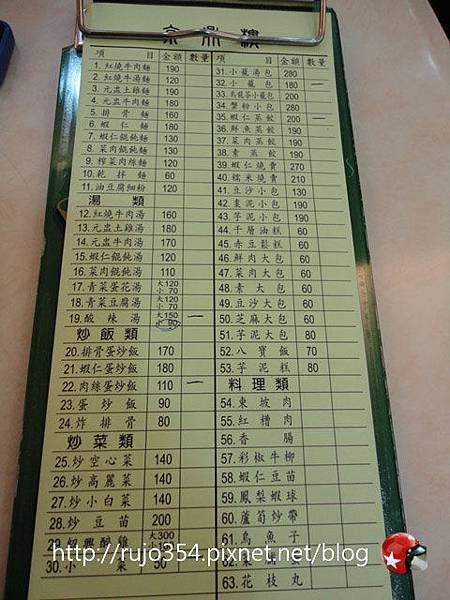 京鼎樓
項 目 金額 數量
1. 紅燒牛肉麵 190
2. 紅燒牛湯麵 120
3. 元盅土雞麵 190
4. 元盅牛肉麵 180
5. 排骨麵 160
6. 蝦仁麵 180
7. 蝦仁餛飩麵 130
8. 菜肉餛飩麵 120
9. 榨菜肉絲麵 120
10. 乾拌麵 60
11. 油豆腐細粉 120
湯類
12. 紅燒牛肉湯 160
13. 元盅土雞湯 180
14. 元盅牛肉湯 170
15. 蝦仁餛飩湯 120
16. 菜肉餛飩湯 110
17. 青菜蛋花湯 大120 小 70
18. 青菜豆腐湯 大120 小 70
19. 酸辣湯 大150 小 90 一
炒飯類
20. 排骨蛋炒飯 170
21. 蝦仁蛋炒飯 180
22. 肉絲蛋炒飯 110 一
23. 蛋炒飯 90
24. 炸排骨 80
炒菜類
25. 炒空心菜 140
26. 炒高麗菜 140
27. 炒小白菜 140
28. 炒豆苗 200
29. 紹興醉雞 大300
30. 小菜 50
項 目 金額 數量
31. 小籠湯包 280
32. 小籠包 180 一
33. 烏龍茶小籠包 200
34. 蟹粉小包 280
35. 蝦仁蒸餃 200 一
36. 鮮魚蒸餃 190
37. 菜肉蒸餃 190
38. 素蒸餃 200
39. 蝦仁燒賣 270
40. 糯米燒賣 210
41. 豆沙小包 130
42. 棗泥小包 190
43. 芋泥小包 190
44. 千層油糕 60
45. 赤豆鬆糕 60
46. 鮮肉大包 60
47. 菜肉大包 60
48. 素大包 60
49. 豆沙大包 60
50. 芝麻大包 60
51. 芋泥大包 60
52. 八寶飯 70
53. 芋泥糕 80
料理類
54. 東坡肉
55. 紅糟肉
56. 香腸
57. 彩椒牛柳
58. 蝦仁豆苗
59. 鳳梨蝦球
60. 蘆筍炒帶
61. 烏魚子
62.
63. 花枝丸
http://rujo354.pixnet.net/blog